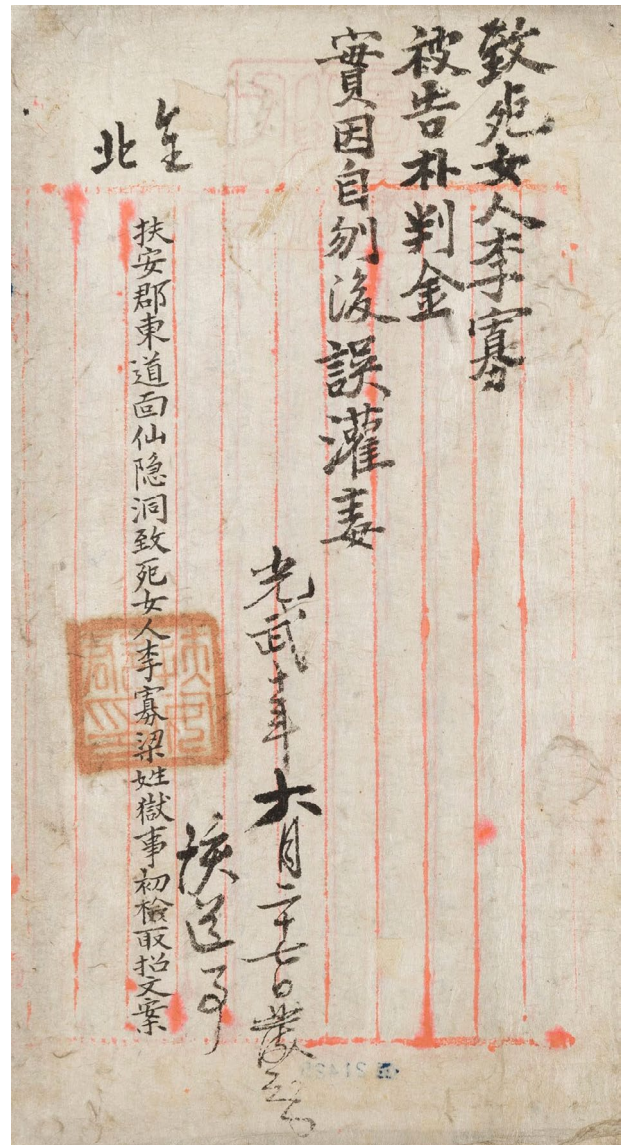 致死女人李寡
被告朴判金
實因自刎後誤灌毒
光武十年六月二十七日
送
全北
扶安郡東道面仙隐洞致死女人李寡梁姓獄事初檢取招文案